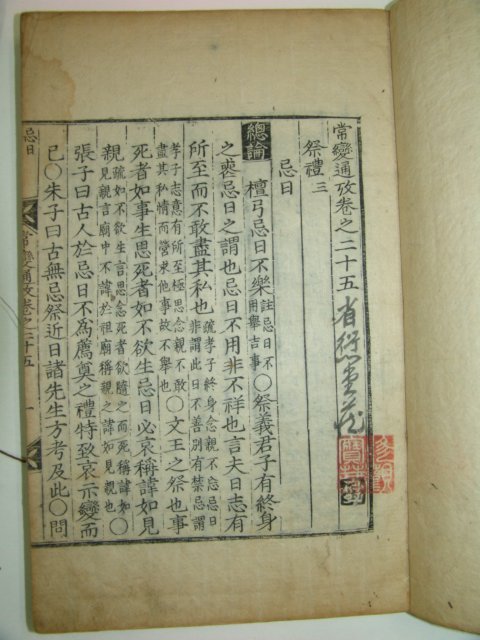 常變通攷卷之二十五
祭禮三
忌日
總論 檀弓忌日不樂註忌日不用擧吉事○祭義君子有終身
之喪忌日之謂也忌日不用非不祥也言夫日志有
所至而不敢盡其私也疏孝子終身念親不忘忌日非謂此日不善別有禁忌謂
孝子志意有所至極思念親不敢盡其私情而營求他事故不擧也○文王之祭也事
死者如事生思死者如不欲生忌日必哀稱諱如見
親疏如不欲生言思念死者欲隨之而死稱諱如見親言廟中不諱於祖廟稱親之諱如見親也○
張子曰古人於忌日不爲薦奠之禮特致哀示變而
已○朱子曰古無忌祭近日諸先生方考及此○問
常變通攷卷之二十五 一
忌日